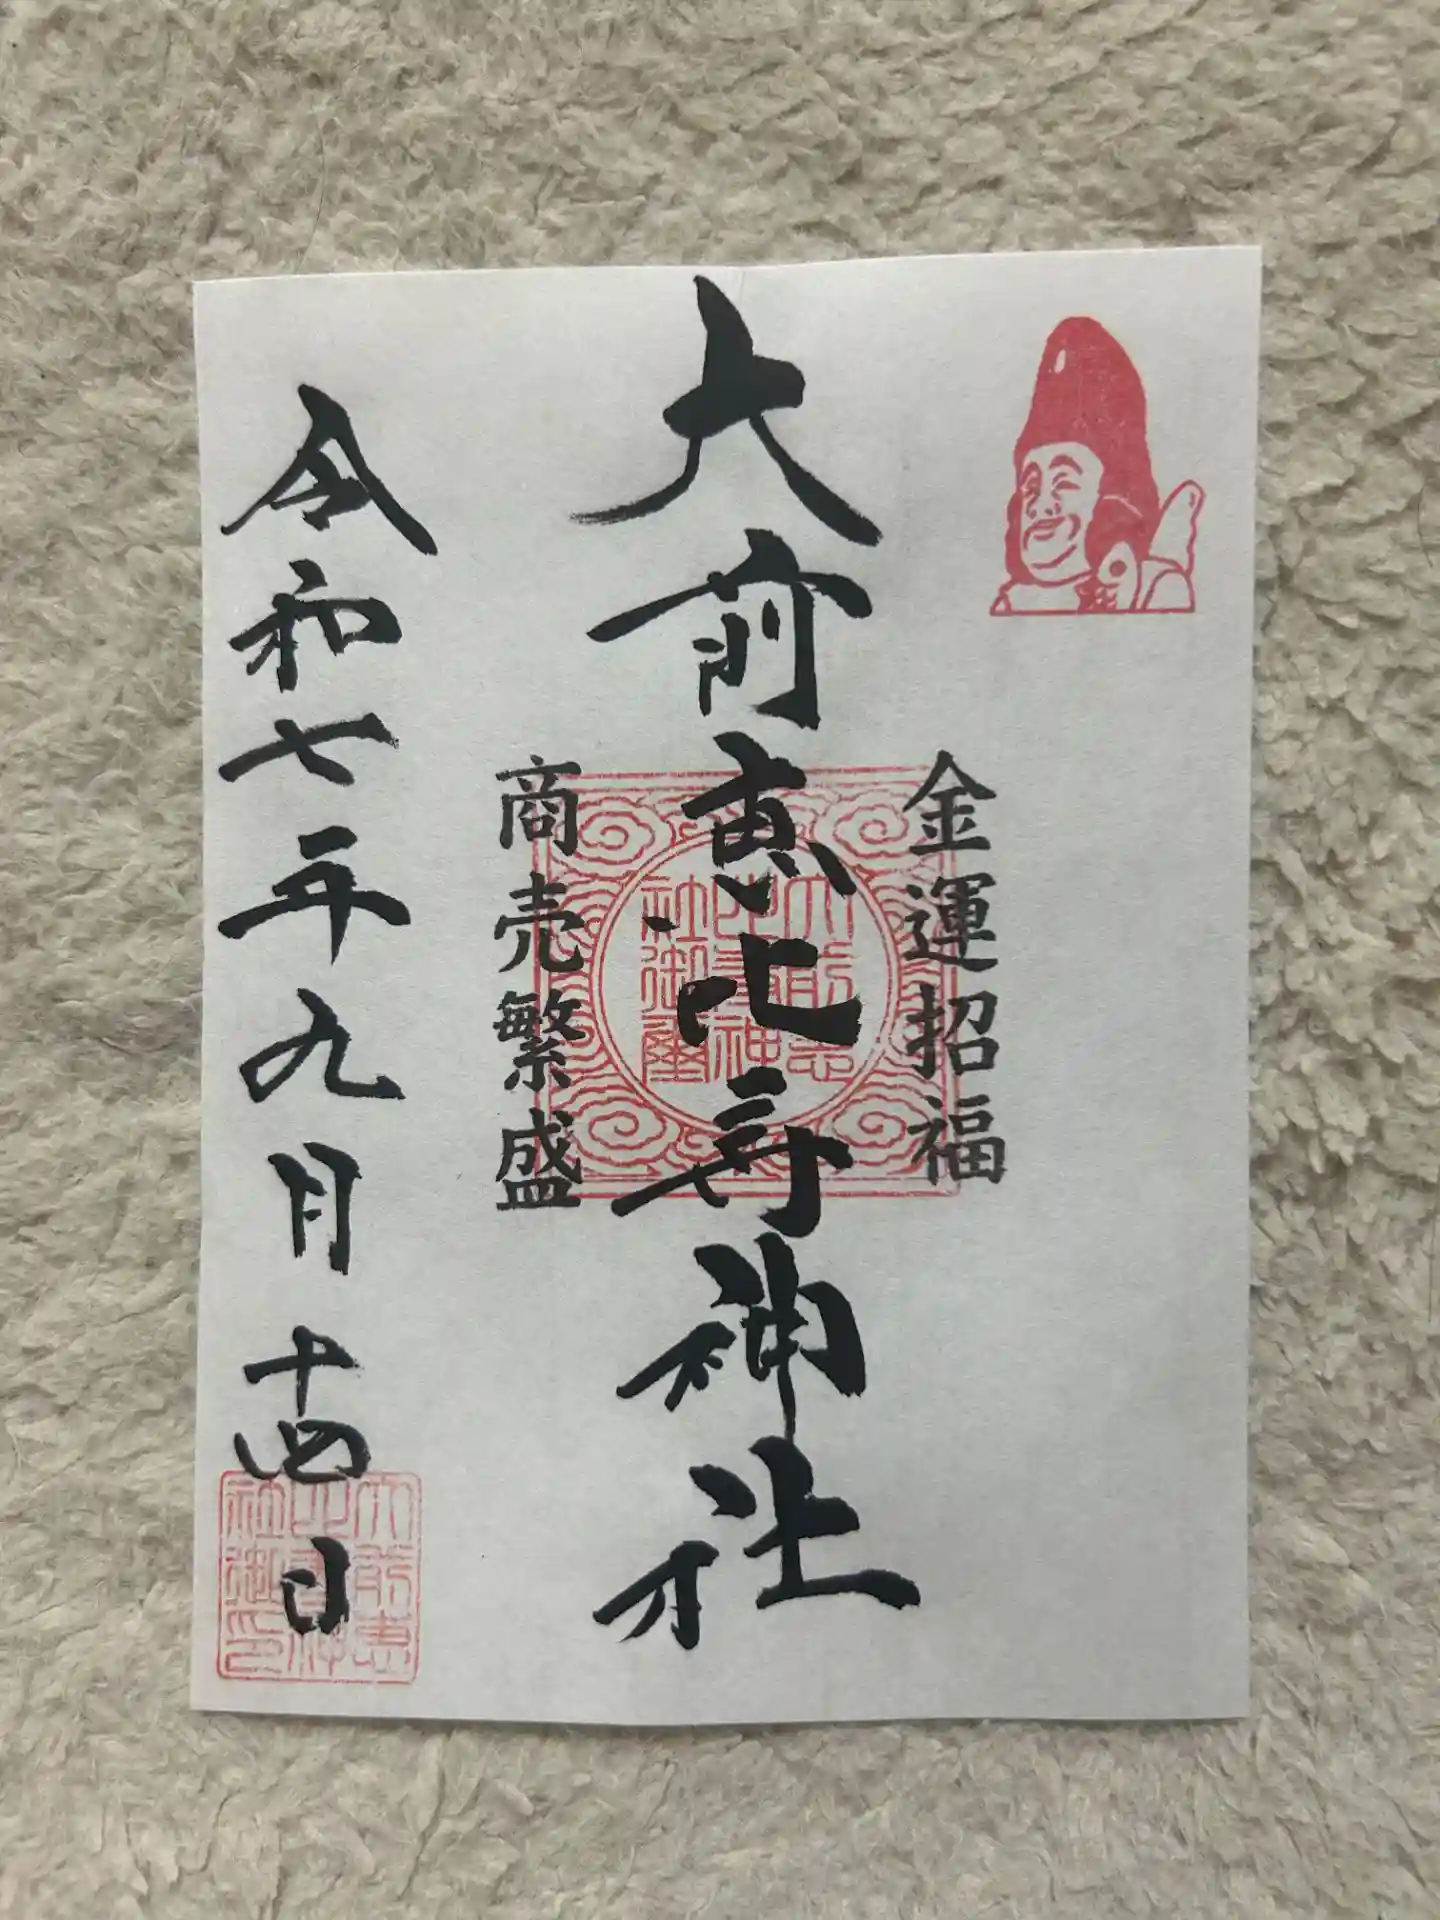 金運招福
大前恵比寿神社
商売繁盛
令和七年九月十四日
大前恵比寿神社御璽
大前恵比寿神社御印